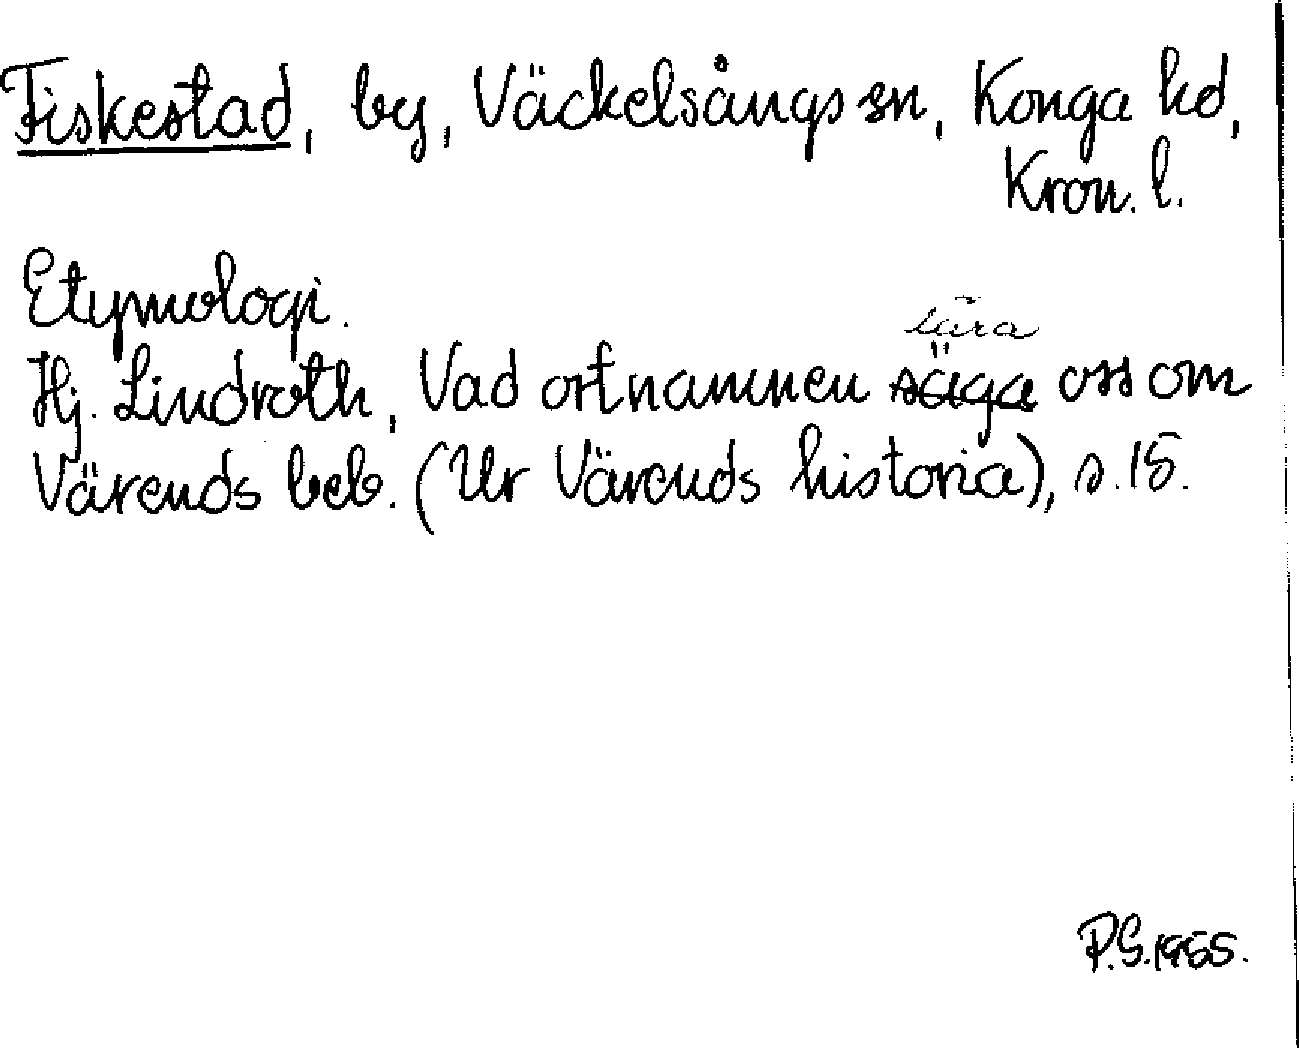 Fiskestad, by, Väckelsångs sn, Konga hd,
Kron. l.
Etymologi.
lära
Hj. Lindroth, Vad ortnamnen säga oss om
Värends beb. (Ur Värends historia), s. 15.
P.G. 1955.